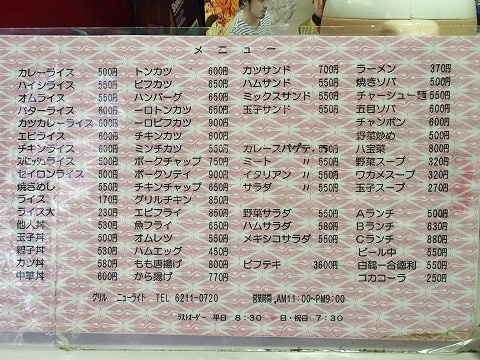 メニュー
カレーライス 500円
ハイシライス 550円
オムライス 550円
バターライス
カツカレーライス
エビライス 550円
チキンライス 550円
スパニッシュライス 550円
セイロンライス 550円
焼きめし 550円
ライス 170円
ライス大 230円
他人丼 530円
玉子丼
親子丼 530円
カツ丼 580円
中華丼 600円
トンカツ 600円
ビフカツ
ハンバーグ
一口トンカツ
一口ビフカツ 900円
チキンカツ 600円
ミンチカツ 550円
ポークチャップ 750円
ポークソテイ
チキンチャップ 650円
グリルチキン 850円
エビフライ 850円
魚フライ 650円
オムレツ 550円
ハムエッグ 450円
もも唐揚げ 800円
から揚げ 770円
カツサンド 700円
ハムサンド 550円
ミックスサンド 550円
玉子サンド 550円
カレースパゲティ 550円
ミート 〃 550円
イタリアン 〃 550円
サラダ 〃 550円
野菜サラダ 550円
ハムサラダ 580円
メキシコサラダ 550円
ビフテキ 3600円
ラーメン 370円
焼きソバ 500円
チャーシュー麺 550円
五目ソバ 600円
チャンポン 600円
野菜炒め 500円
八宝菜 800円
野菜スープ 320円
ワカメスープ 320円
玉子スープ 270円
Aランチ 500円
Bランチ 630円
Cランチ 880円
ビール中 550円
白鶴一合徳利 550円
コカコーラ 250円
グリル ニューライト TEL 6211-0720 営業時間 AM11:00〜PM9:00
ラストオーダー 平日 8:30 日・祝日 7:30